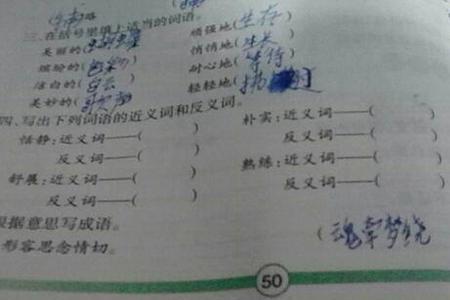 略
三、在括号里填上适当的词语。
美丽的( ) 顽强地(生存)
缤纷的(色彩) 悄悄地(生长)
洁白的(白云) 耐心地(等待)
美妙的(歌声) 轻轻地( 过)
四、写出下列词语的近义词和反义词。
恬静:近义词——( ) 朴实:近义词——( )
反义词——( ) 反义词——( )
舒展:近义词——( ) 熟练:近义词——( )
反义词——( ) 反义词——( )
根据意思写成语。
形容思念情切。 (魂牵梦绕
50